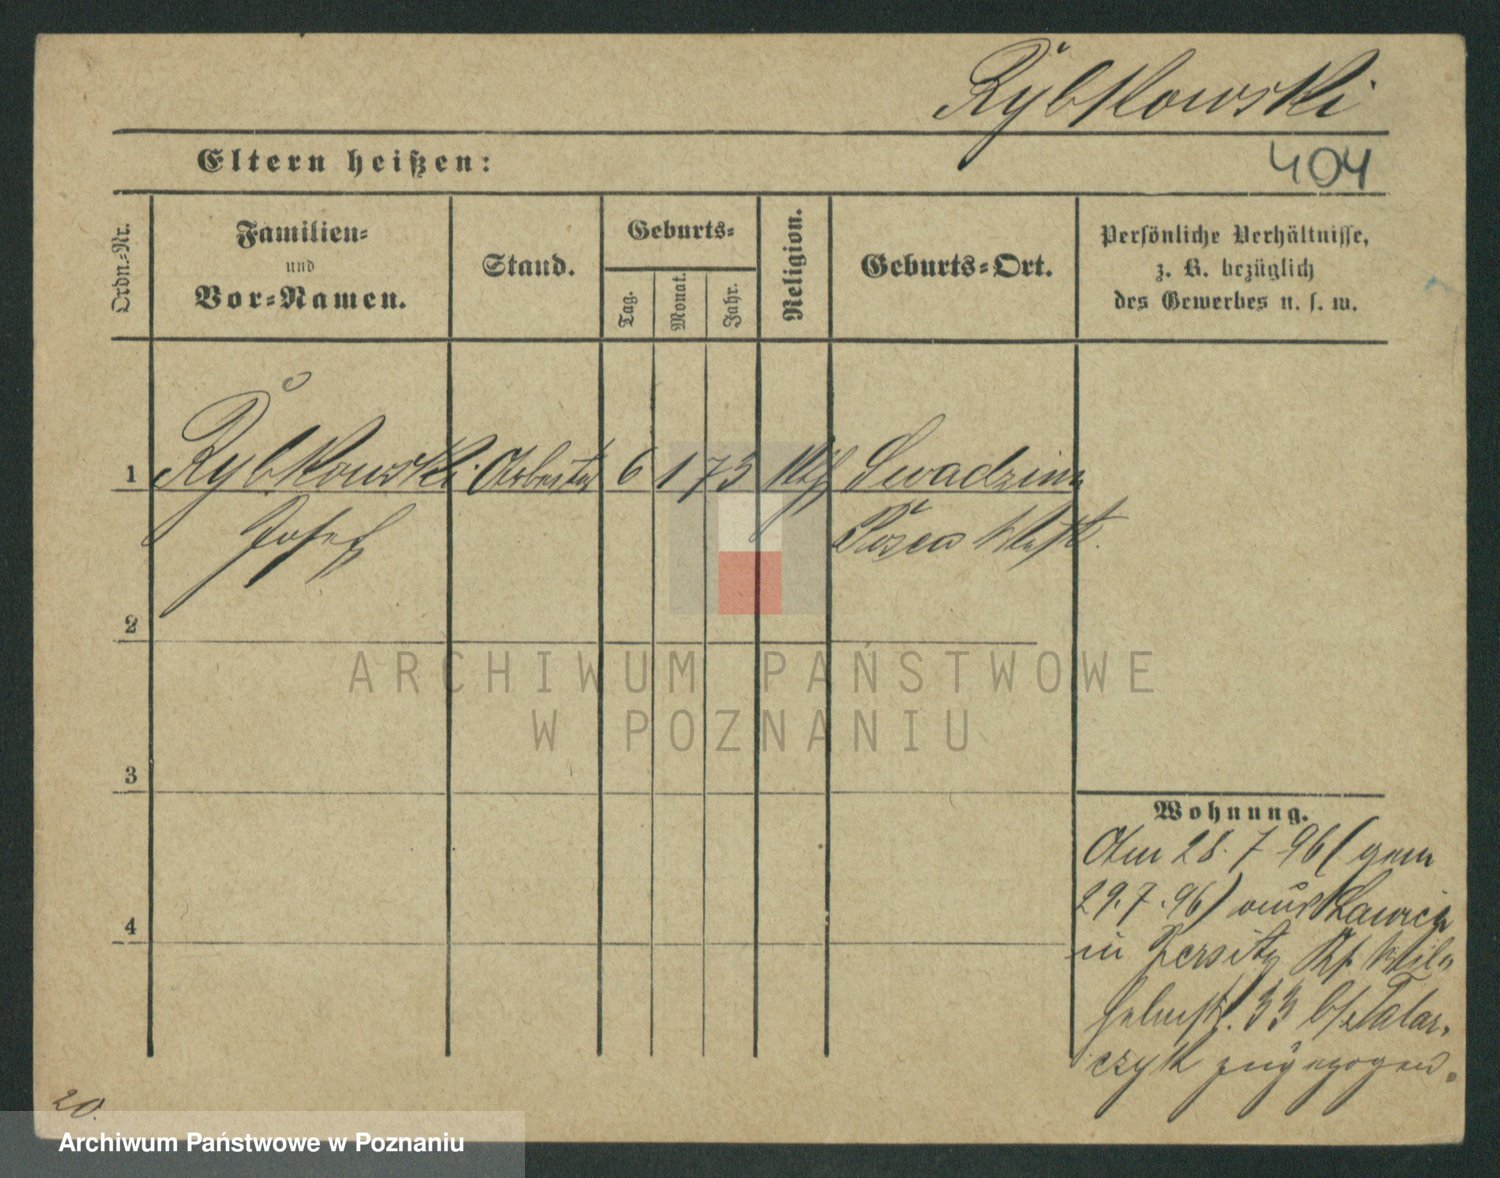 Rybkowski
Eltern heißen:
404
Ordn.-Nr.
Familien-
und
Vor-Namen.
Stand.
Geburts-
Tag.
Monat.
Jahr.
Religion.
Geburts-Ort.
Persönliche Verhältnisse,
z. B. bezüglich
des Gewerbes u. s. w.
1 Rybkowski Arbeiter 6 1 73 Kth Swadzim
Josef Posen West.
2
ARCHIWUM PAŃSTWOWE
W POZNANIU
3
Wohnung.
Am 28. 7 96 (gem
29. 7. 96) aus Lawica
in Jersitz Wil-
helmstr. 33 b/ Tatar-
czyk zugezogen.
4
20.
Archiwum Państwowe w Poznaniu